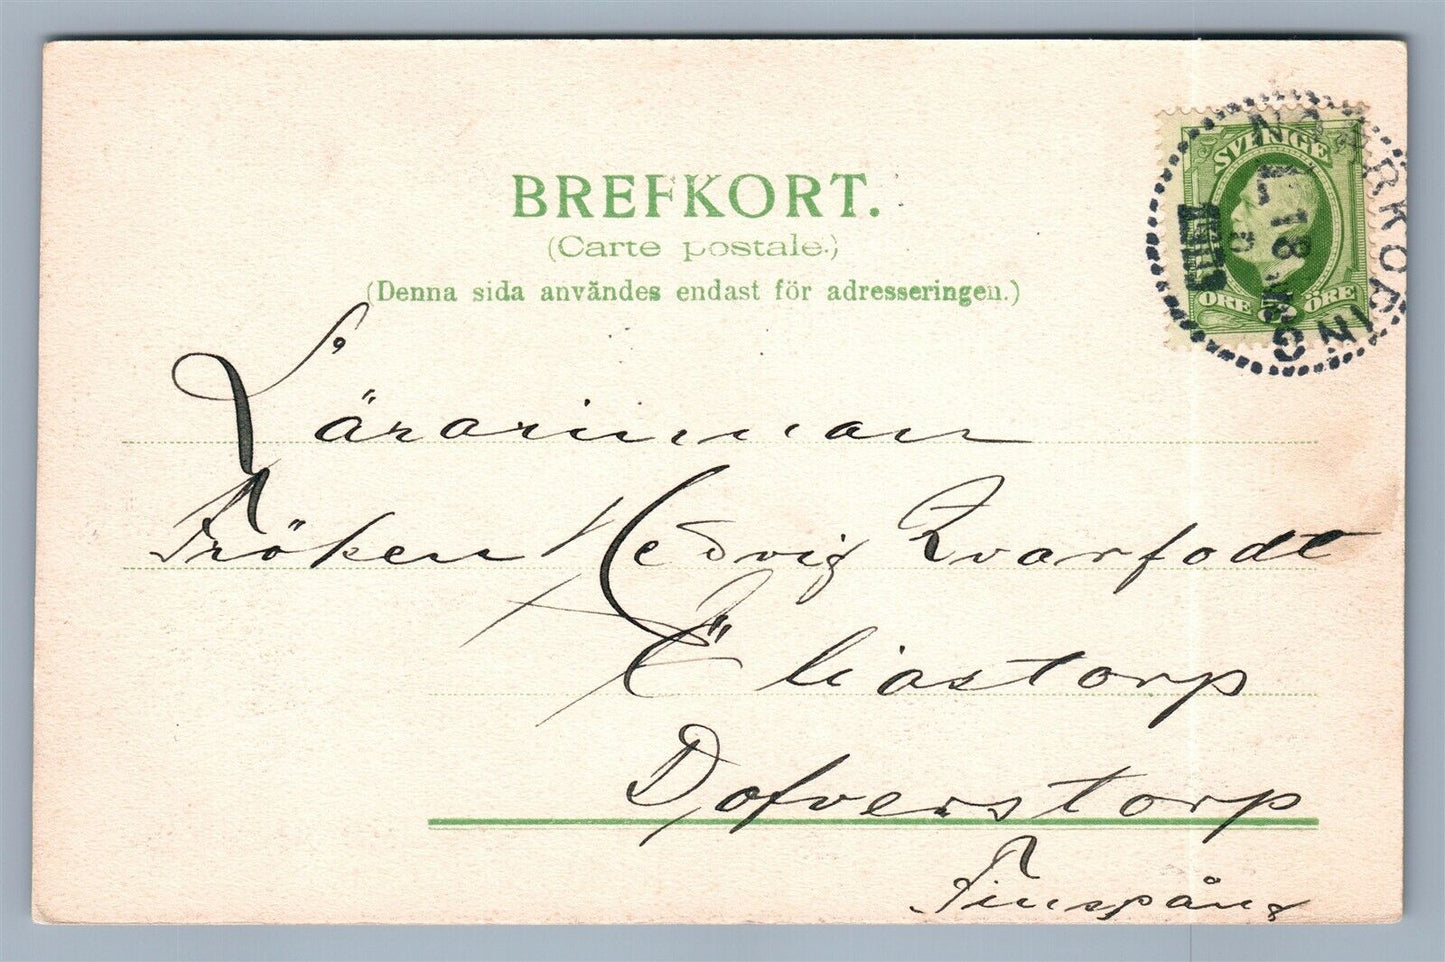 BREFKORT.
(Carte postale.)
(Denna sida användes endast för adresseringen.)
SVERIGE
ÖRE 5 ÖRE
NORRKÖPING
Lärarinnan
Fröken Hedvig Qvarfodt
Eliastorp
Dofverstorp
Finspång